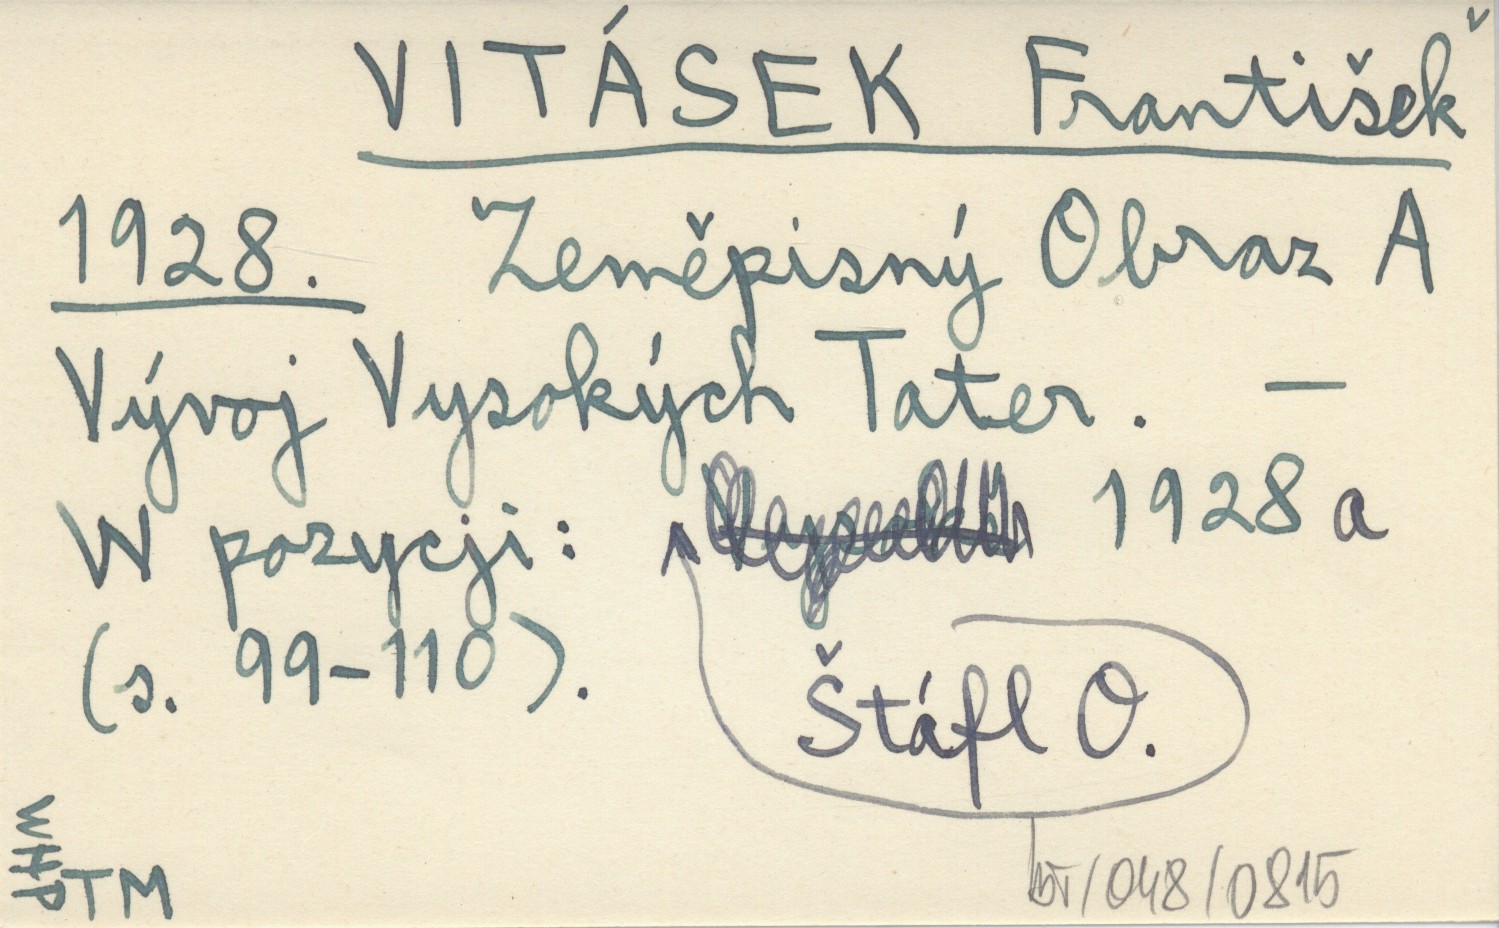 VITÁSEK František
1928. Zeměpisný Obraz A
Vývoj Vysokých Tater. —
W pozycji: 1928 a
(s. 99-110).
Štáfl O.
WHP
TM
/048/0815